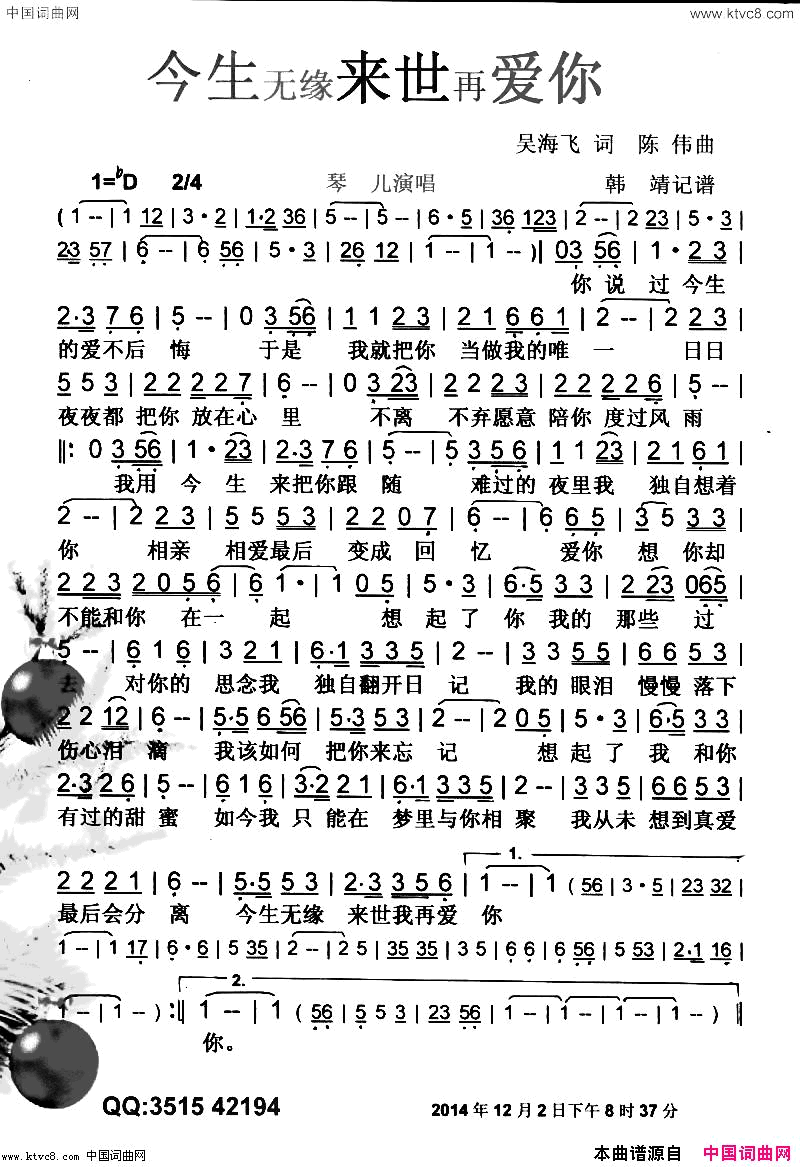 中国词曲网
www.ktvc8.com
今生无缘来世再爱你
吴海飞 词 陈 伟曲
1=♭D 2/4 琴 儿演唱 韩 靖记谱
( 1 -- | 1 12 | 3 · 2 | 1·2 36 | 5 -- | 5 -- | 6 · 5 | 36 123 | 2 -- | 2 23 | 5 · 3 |
23 57 | 6 -- | 6 56 | 5 · 3 | 26 12 | 1 -- | 1 -- )| 03 56 | 1 · 2 3 |
你 说 过 今生
2·3 7 6 | 5 -- | 0 3 56 | 1 1 2 3 | 2 1 6 6 1 | 2 -- | 2 2 3 |
的爱不后 悔 于是 我就把你 当做我的唯 一 日日
5 5 3 | 2 2 2 2 7 | 6 -- | 0 3 23 | 2 2 1 | 2 2 2 2 6 | 5 -- |
夜夜都 把你 放在心 里 不离 不弃愿意 陪你 度过风 雨
‖: 0 3 56 | 1 · 23 | 2·3 7 6 | 5 -- | 5 -- | 3 5 6 | 1 1 23 | 2 1 6 1 |
我用 今 生 来把你跟 随 难过的 夜里我 独自想着
2 -- | 2 2 3 | 5 5 5 3 | 2 2 0 7 | 6 -- | 6 6 5 | 3 5 3 3 |
你 相亲 相爱最后 变成 回 忆 爱你 想 你却
2 2 3 | 2 0 5 6 | 6 1 | 1 · | 1 0 5 | 5 · 3 | 6·5 3 3 | 2 23 065 |
不能和你 在一 起 想 起了 你 我的 那些 过
5 -- | 6 1 6 | 3 2 1 | 6·1 3 3 5 | 2 -- | 3 3 5 | 6 6 5 3 |
去 对你的 思念我 独自翻开日 记 我的 眼泪 慢慢 落下
2 2 12 | 6 -- | 5·5 6 56 | 5·3 5 3 | 2 -- | 2 0 5 | 5 · 3 | 6·5 3 3 |
伤心泪 滴 我该如何 把你来忘 记 想 起了 我 和你
2·3 2 6 | 5 -- | 6 1 6 | 3·2 2 1 | 6·1 3 3 5 | 2 -- | 3 3 5 | 6 6 5 3 |
有过的甜 蜜 如今我 只 能在 梦里与你相 聚 我从未 想到真爱
1.
2 2 2 1 | 6 -- | 5·5 5 3 | 2·3 3 5 6 | 1 -- | 1 ( 56 | 3 · 5 | 23 32 |
最后会分 离 今生无缘 来世我再爱 你
1 -- | 1 17 | 6 · 6 | 5 35 | 2 -- | 2 5 | 35 35 | 3 5 | 6 6 | 6 56 | 5 53 | 2·1 16 |
2.
1 -- | 1 -- ) :‖ 1 -- | 1 ( 56 | 5 5 3 | 23 56 | 1 -- | 1 -- | 1 -- ) ‖
你。
QQ:3515 42194
2014 年 12 月 2 日下午 8 时 37 分
www.ktvc8.com 中国词曲网
本曲谱源自 中国词曲网